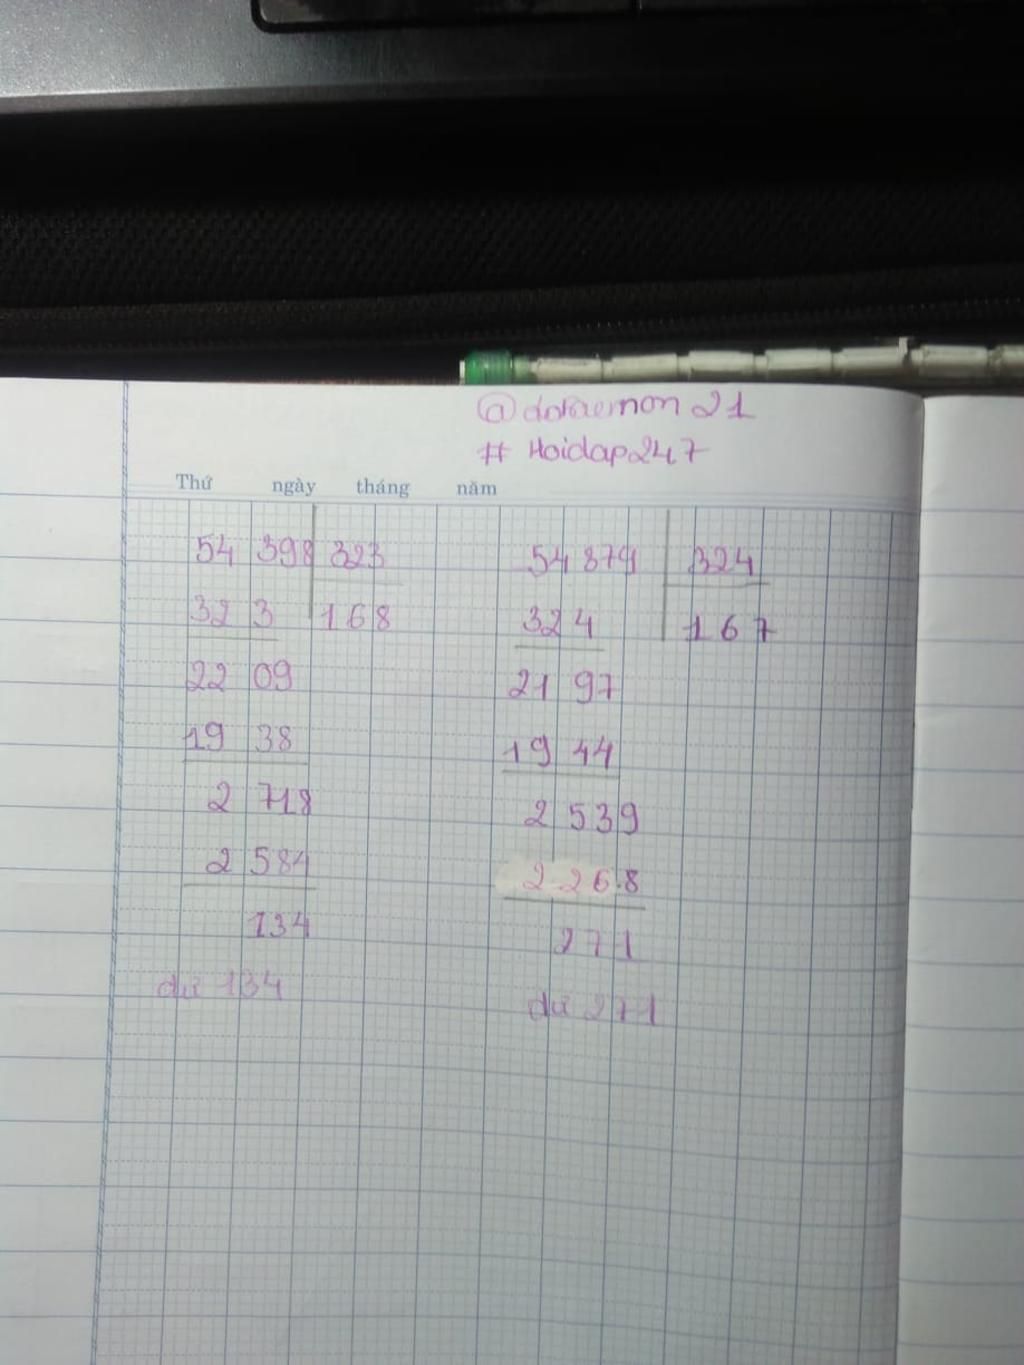 @doraemon 21
# Hoidap247
Thứ ngày tháng năm
54 398 323
32 3 168
22 09
19 38
2 718
2 584
134
dư 134
54 879 324
32 4 167
21 97
19 44
2 539
2 268
271
dư 271